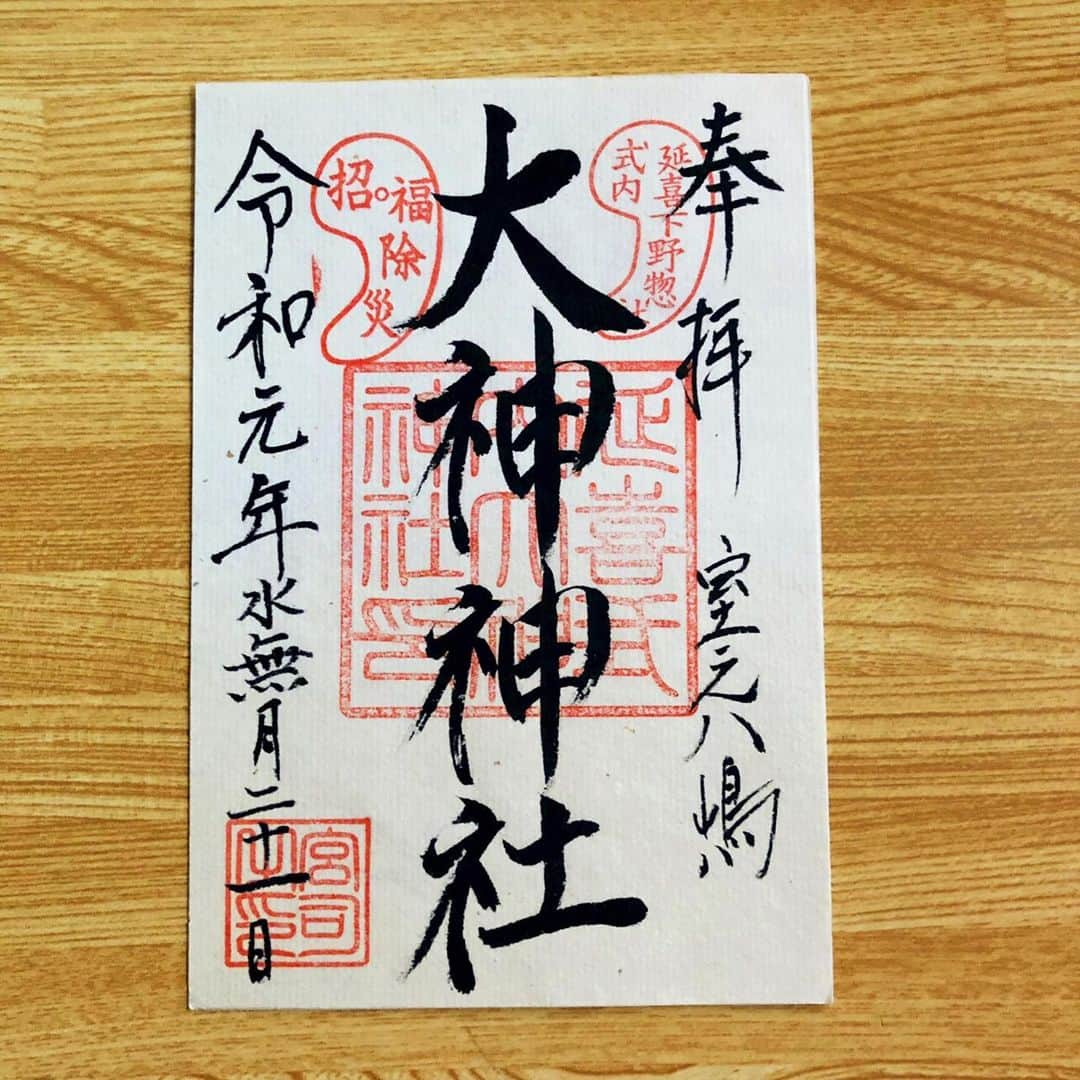 奉拝 室元八嶋
延喜下野惣社
式内
大神神社
招福除災
延喜式
内大神
神社印
令和元年水無月二十一日
宮司
之印